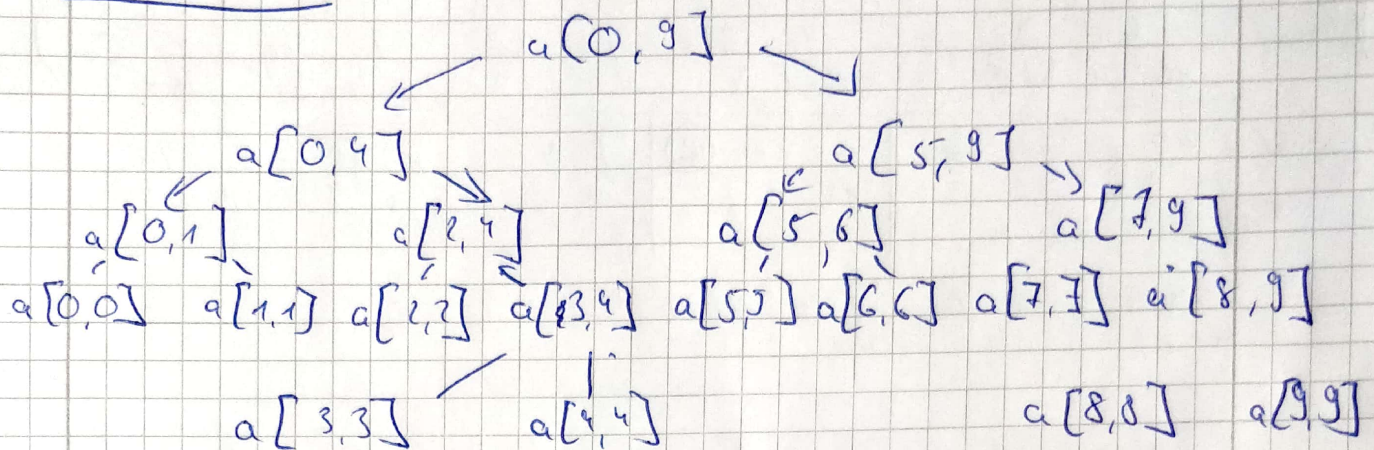 a[0,9]
a[0,4] a[5,9]
a[0,1] a[2,4] a[5,6] a[7,9]
a[0,0] a[1,1] a[2,2] a[3,4] a[5,5] a[6,6] a[7,7] a[8,9]
a[3,3] a[4,4] a[8,8] a[9,9]